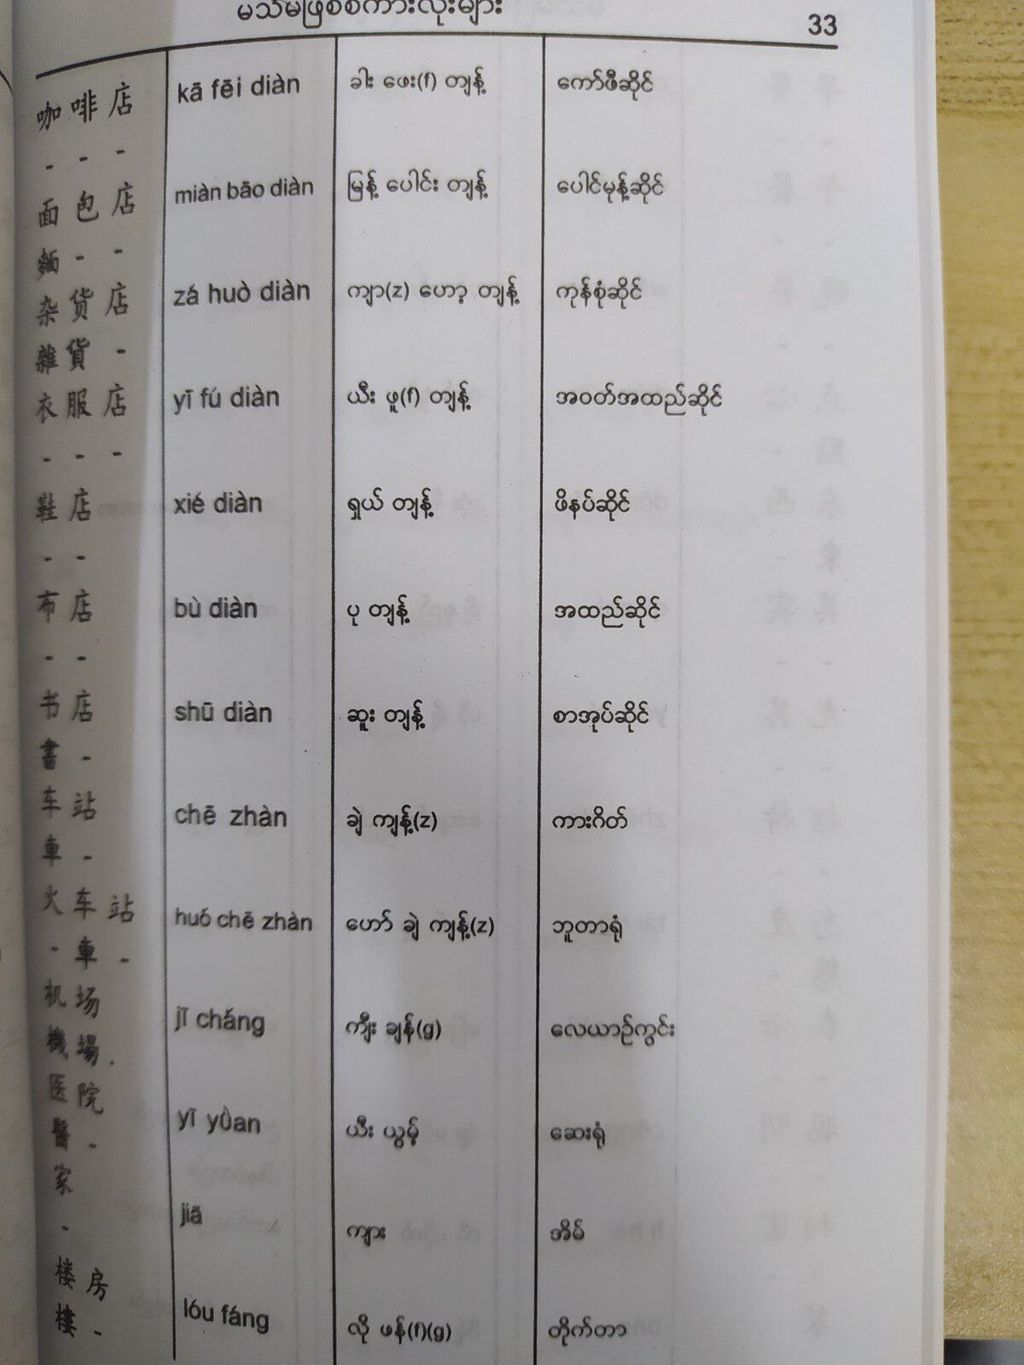 မသိမဖြစ်စကားလုံးများ 33
咖啡店 kā fēi diàn ခါး ဖေး(f) တျန့် ကော်ဖီဆိုင်
- - -
面包店 miàn bāo diàn မြန့် ပေါင်း တျန့် ပေါင်မုန့်ဆိုင်
麵 - -
杂货店 zá huò diàn ကျာ(z) ဟော့ တျန့် ကုန်စုံဆိုင်
雜貨 -
衣服店 yī fú diàn ယီး ဖူ(f) တျန့် အဝတ်အထည်ဆိုင်
- - -
鞋店 xié diàn ရှယ် တျန့် ဖိနပ်ဆိုင်
- -
布店 bù diàn ပု တျန့် အထည်ဆိုင်
- -
书店 shū diàn ဆူး တျန့် စာအုပ်ဆိုင်
書 -
车站 chē zhàn ချဲ ကျန့်(z) ကားဂိတ်
車 -
火车站 huó chē zhàn ဟော် ချဲ ကျန့်(z) ဘူတာရုံ
- 車 -
机场 jī cháng ကျီး ချန်(g) လေယာဉ်ကွင်း
機場.
医院 yī yùan ယီး ယွမ့် ဆေးရုံ
醫 -
家 jiā ကျား အိမ်
-
楼房 lóu fáng လို ဖန်(f)(g) တိုက်တာ
樓 -